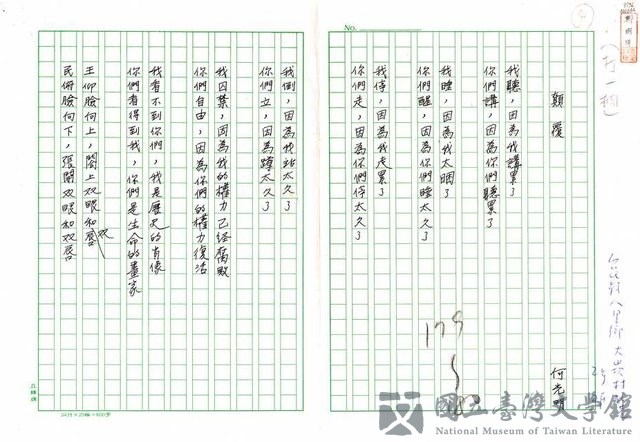 No.
顛覆
何光明
我聽，因為我講累了
你們講，因為你們聽累了
我睡，因為我太睏了
你們醒，因為你們睡太久了
我停，因為我走累了
你們走，因為你們停太久了
我倒，因為我站太久了
你們立，因為蹲太久了
我囚禁，因為我的權力已經腐敗
你們自由，因為你們的權力復活
我看不到你們，我是歷史的肖像
你們看得到我，你們是生命的畫家
王仰臉向上，閤上双眼和双唇
民俯臉向下，張開双眼和双唇
24行×25格=600字
國立臺灣文學館
National Museum of Taiwan Literature